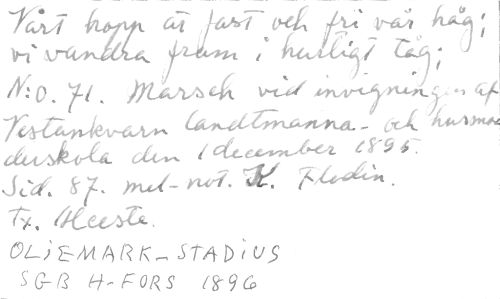 Vårt hopp är fast och fri vår håg;
vi vandra fram i hurtigt tåg;
N:o. 71. Marsch vid invigningen af
Vestankvarn landtmanna- och husmo
derskola den 1 december 1895.
Sid. 87. mel-not. K. Flodin.
Tx.
OLIEMARK-STADIUS
SGB H-FORS 1896